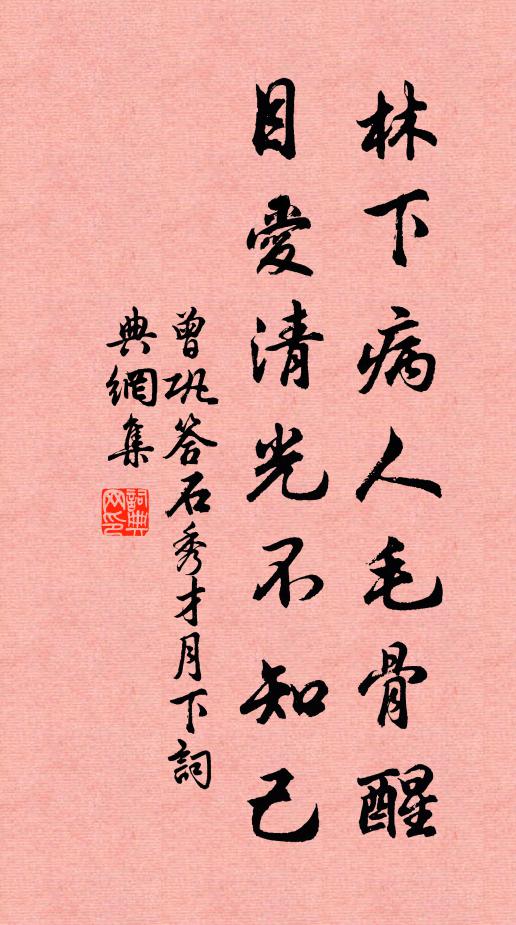 林下病人毛骨醒
目愛清光不知己
曾鞏答石秀才月下詞
典網集
詞典網印